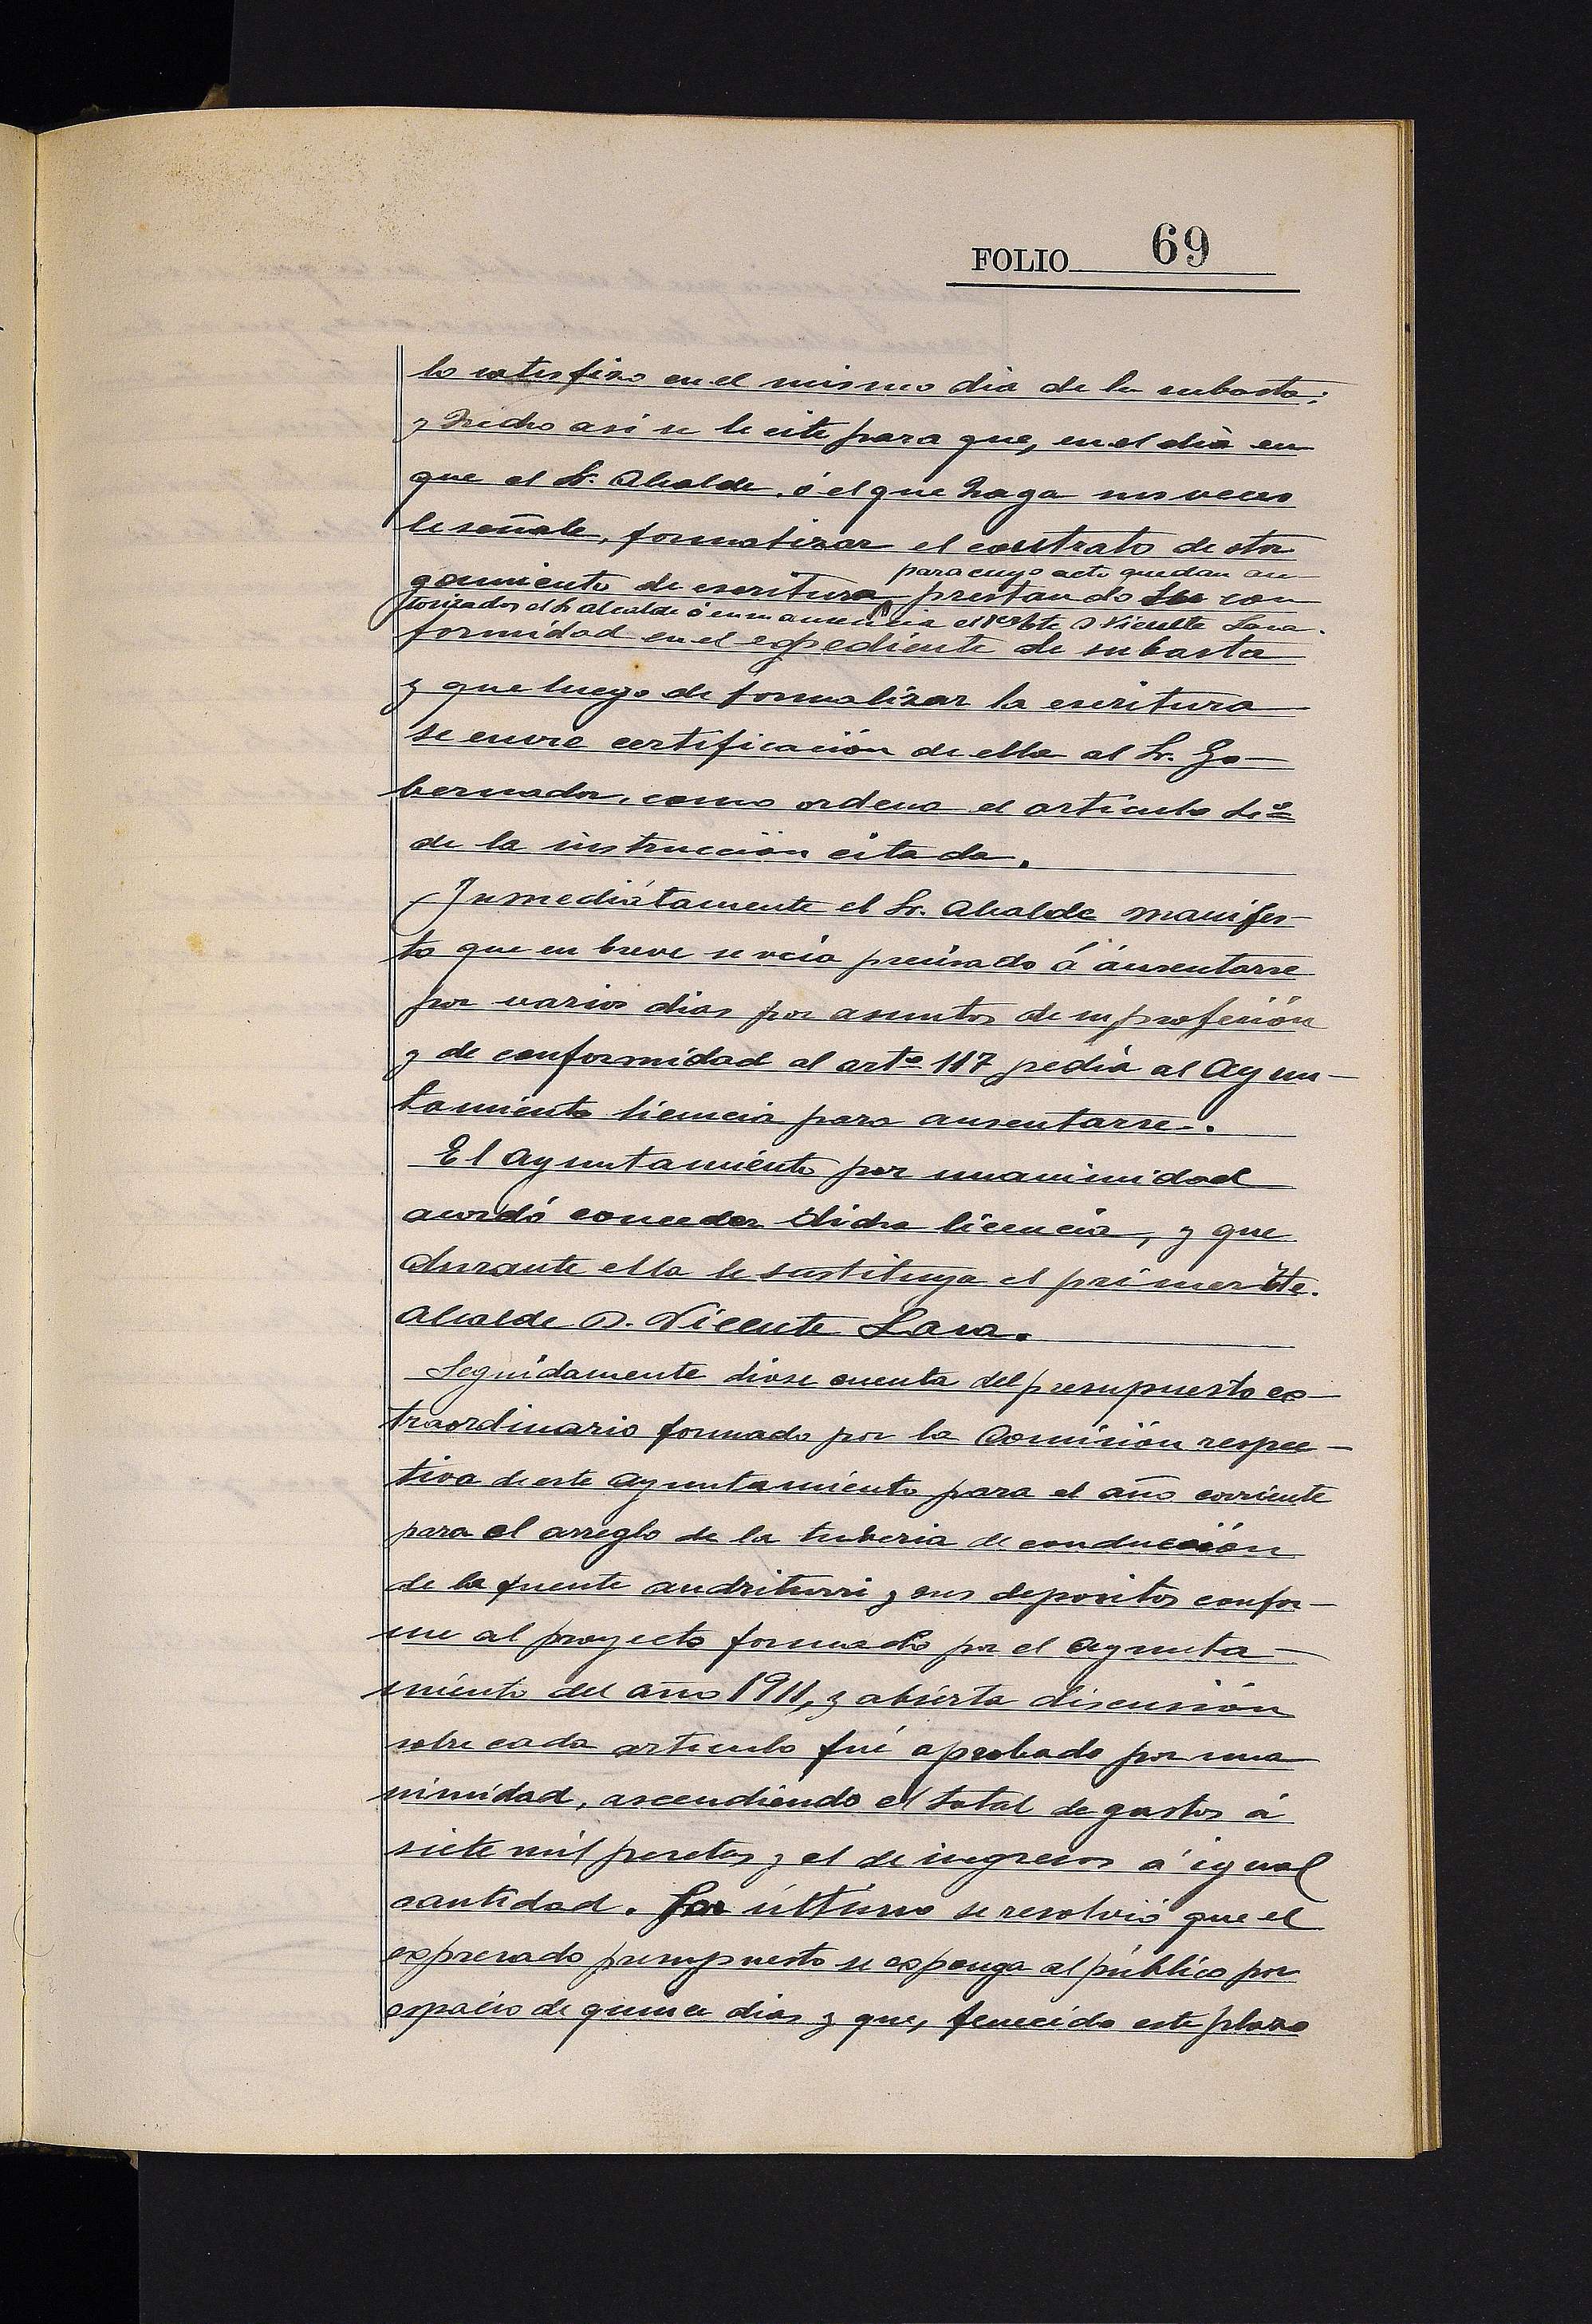 FOLIO 69
lo satisfizo en el mismo dia de la subasta;
y hecho asi se le cite para que, en el dia en
que el Sr. Alcalde, ó el que haga sus veces
le señale, formalizar el contrato de otor
para cuyo acto quedan au-
gamiento de escritura prestando su con
torizados el Sr Alcalde ó en su ausencia el 1er tte D Vicente Lasa.
formidad en el expediente de subasta
y que luego de formalizar la escritura
se envie certificación de ella al Sr. Go-
bernador, como ordena el articulo
de la instrucción citada.
Inmediátamente el Sr. Alcalde manifes-
to que en breve se veia precisado á ausentarse
por varios dias por asuntos de su profesión
y de conformidad al artº 117 pedia al Ayun-
tamiento licencia para ausentarse.
El Ayuntamiento por unanimidad
acordó conceder dicha licencia, y que
durante ella le sustituya el primer tte.
Alcalde D. Vicente Lasa.
Seguidamente diose cuenta del presupuesto ex-
traordinario formado por la Comisión respec-
tiva de este Ayuntamiento para el año corriente
para el arreglo de la tuberia de conducción
de la fuente anditurri y sus depositos confor-
me al proyecto formado por el Ayunta-
miento del año 1911, y abierta discusión
sobre cada articulo fué aprobado por una
nimidad, ascendiendo el total de gastos á
siete mil pesetas y el de ingresos á igual
cantidad. Por último se resolvió que el
expresado presupuesto se exponga al público por
espacio de quince dias y que, fenecido este plazo